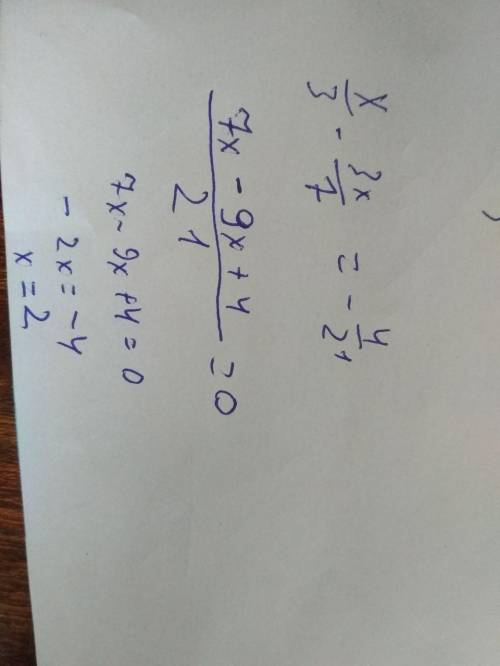 x/3 - 3x/7 = - 4/21
7x - 9x + 4 / 21 = 0
7x - 9x + 4 = 0
- 2x = - 4
x = 2